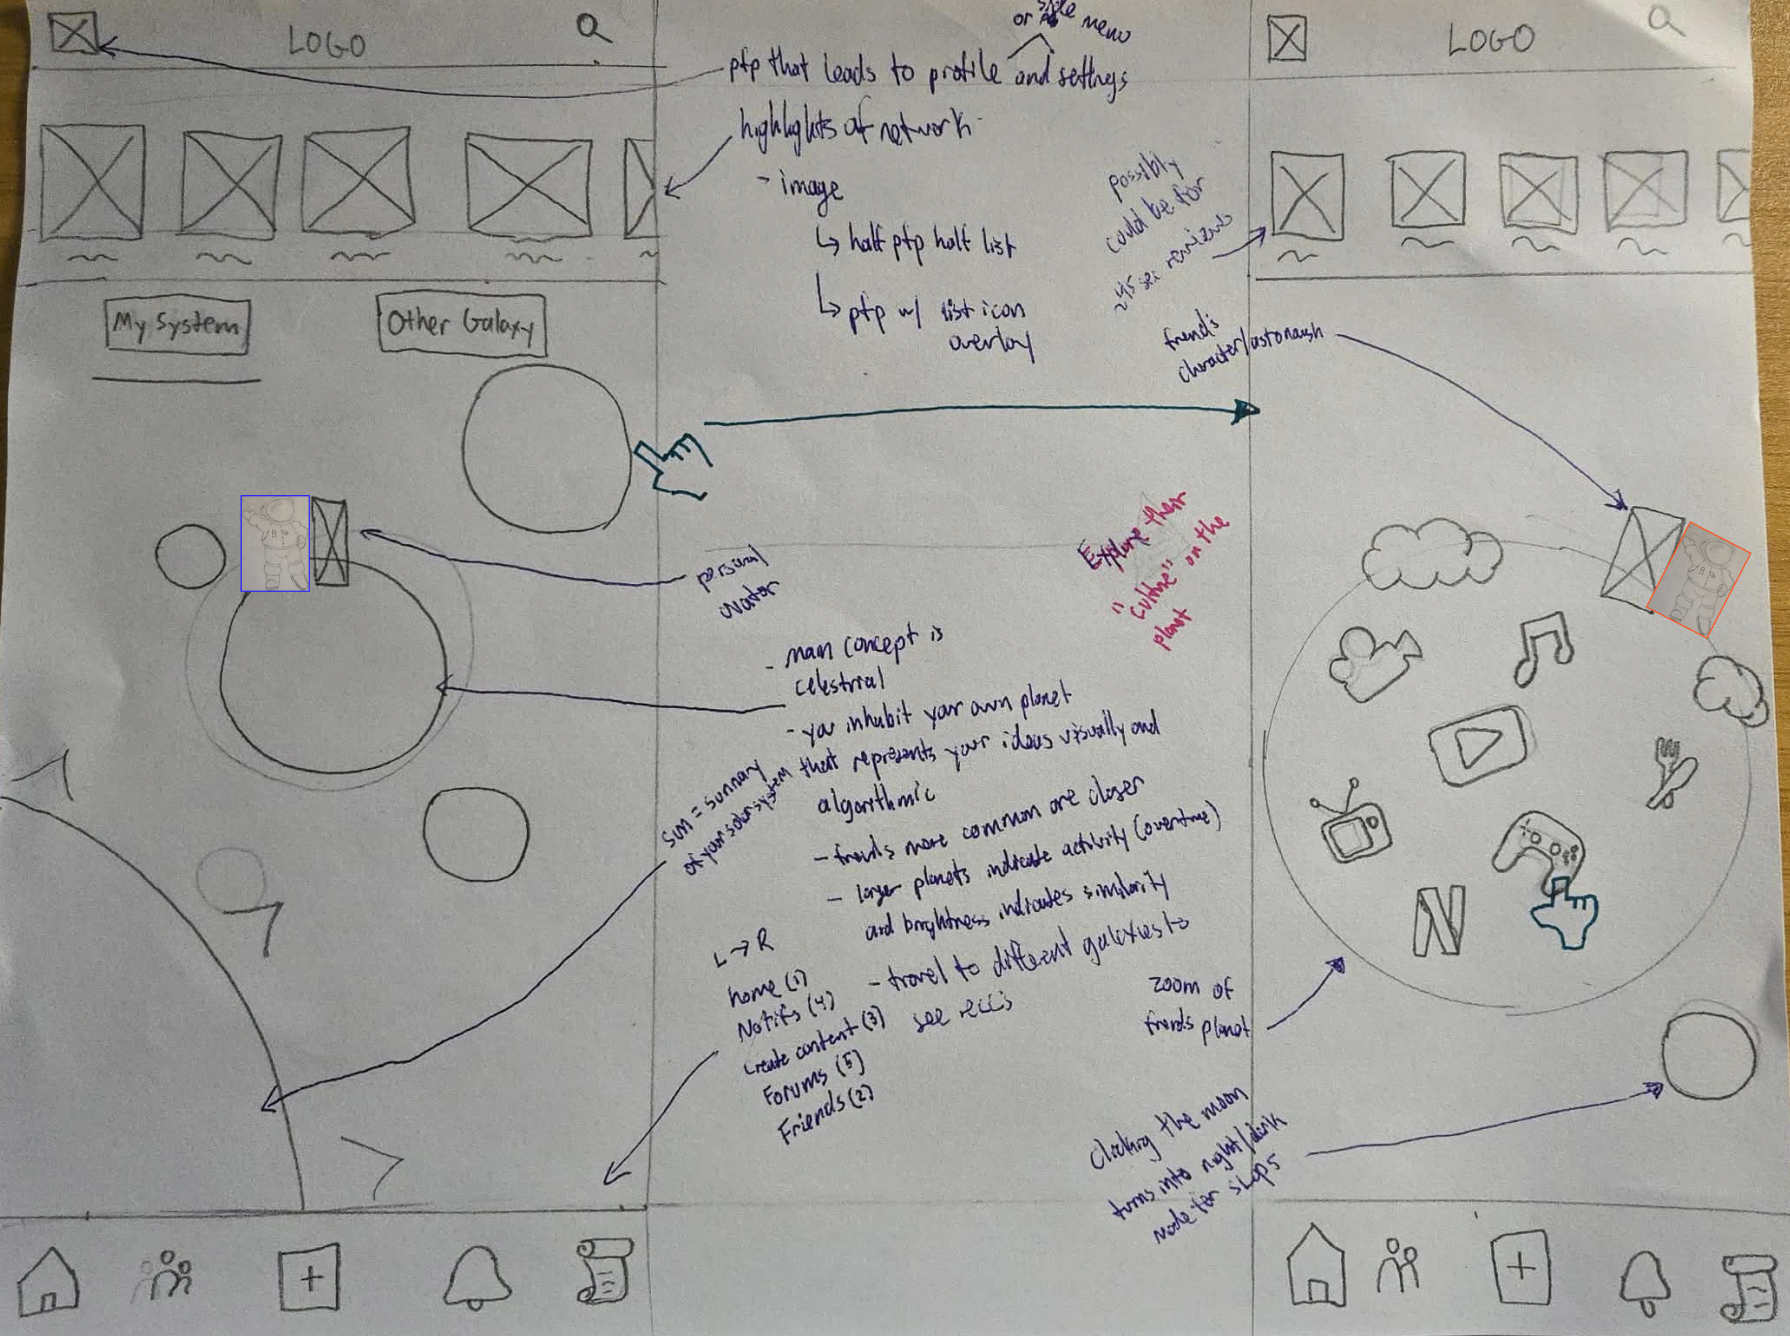 LOGO
My System
Other Galaxy
or side menu
pfp that leads to profile and settings
highlights of network
- image
↳ half pfp half list
↳ pfp w/ list icon
overlay
possibly
could be for
sec reviews
friend's
character/astonaush
Explore their
"culture" on the
planet
personal
avatar
- main concept is
celestrial
- you inhabit your own planet
that represents your ideas visually and
algorithmic
- friends more common are closer
- larger planets indicate activity (overtime)
and brightness indicates similarity
- travel to different galaxies to
see recc's
sun = summary
of your solar system
L → R
home (1)
Notifs (4)
create content (3)
Forums (5)
Friends (2)
zoom of
friends planet
Clicking the moon
turns into night/dark
mode for
LOGO